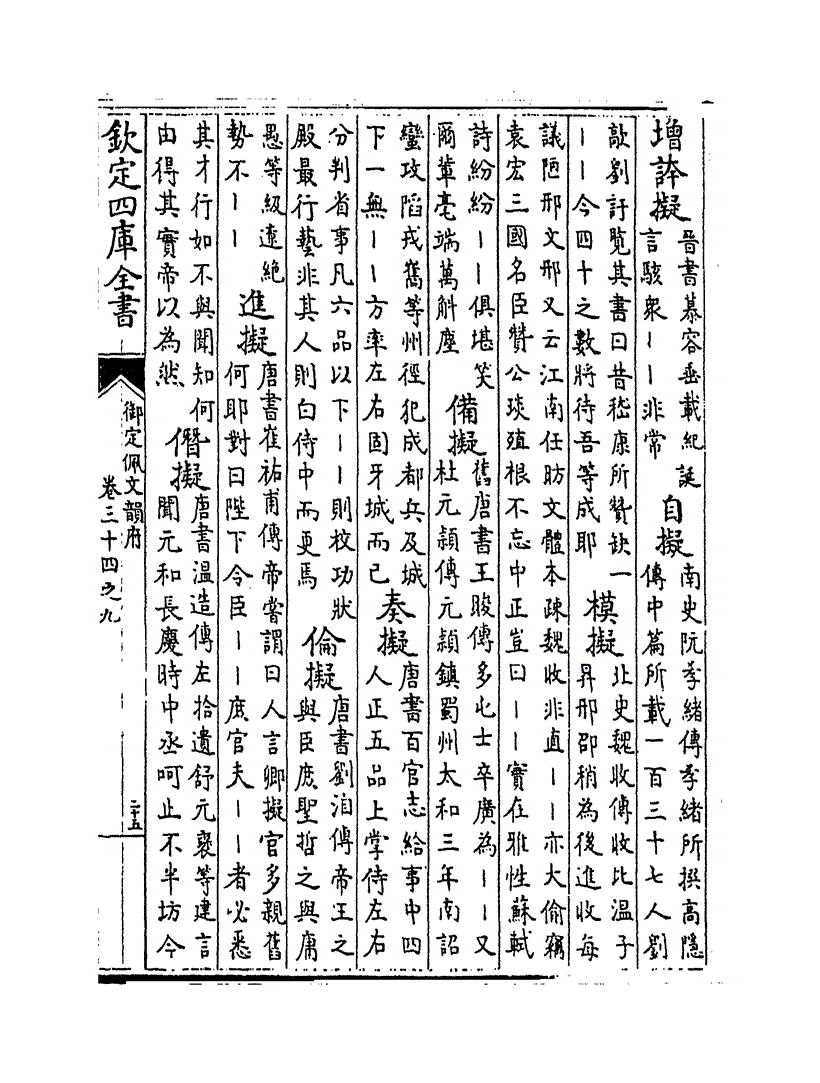 增誇擬晉書慕容垂載紀誕
言駭衆丨丨非常自擬南史阮孝緒傳孝緒所撰高隱
傳中篇所載一百三十七人劉
歊劉訏覽其書曰昔嵇康所贊缺一
丨丨今四十之數將待吾等成耶模擬北史魏收傳收比溫子
昇邢邵稍為後進收每
議陋邢文邢又云江南任昉文體本疎魏收非直丨丨亦大偷竊
袁宏三國名臣贊公琰殖根不忘中正豈曰丨丨實在雅性蘇軾
詩紛紛丨丨俱堪笑
爾輩毫端萬斛塵備擬舊唐書王晙傳多屯士卒廣為丨丨又
杜元頴傳元頴鎮蜀州太和三年南詔
蠻攻陷戎嶲等州徑犯成都兵及城
下一無丨丨方率左右固牙城而已奏擬唐書百官志給事中四
人正五品上掌侍左右
分判省事凡六品以下丨丨則校功狀
殿最行藝非其人則白侍中而更焉倫擬唐書劉洎傳帝王之
與臣庶聖哲之與庸
愚等級遼絶
勢不丨丨進擬唐書崔祐甫傳帝嘗謂曰人言卿擬官多親舊
何耶對曰陛下令臣丨丨庶官夫丨丨者必悉
其才行如不與聞知何
由得其實帝以為然僭擬唐書溫造傳左拾遺舒元褒等建言
聞元和長慶時中丞呵止不半坊今
欽定四庫全書
御定佩文韻府
卷三十四之九
二十五